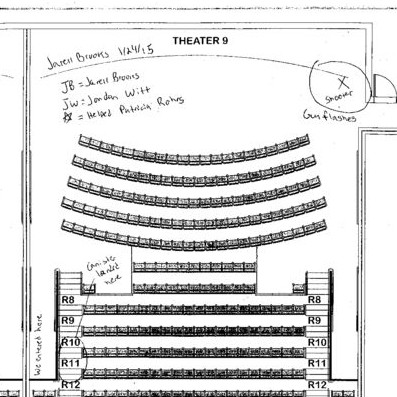 THEATER 9
Jarell Brooks 1/24/15
JB = Jarell Brooks
JW = Jordan Witt
= Helped Patricia
X
Shooter
Gunflashes
Canister
landed
here
We entered here
R8 R8
R9 R9
R10 R10
R11 R11
R12 R12